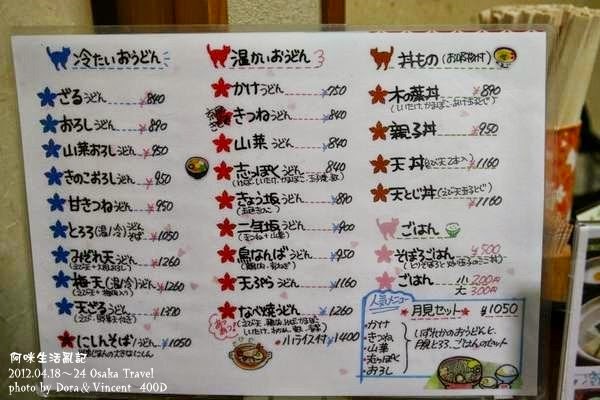 冷たいおうどん
ざるうどん ¥840
おろしうどん ¥950
山菜おろしうどん ¥950
きのこおろしうどん ¥950
甘きつねうどん ¥950
とろろ(温/冷)うどん そば ¥1050
みぞれ天うどん ¥1260
(えび天+大根おろし)
梅天(温/冷)うどん ¥1260
天ざるうどん ¥1370
にしんそば/うどん ¥1050
温かいおうどん
かけうどん ¥750
きつねうどん ¥840
山菜うどん ¥840
志っぽくうどん 840
きょう坂うどん ¥890
二年坂うどん ¥900
(きつね+山菜)
鳥なんばうどん ¥950
天ぷらうどん ¥1160
なべ焼うどん ¥1260
小ライス付 ¥1400
あつあつ!
丼もの(お吸物付)
木の葉丼 ¥890
親子丼 ¥950
天丼(えび天2本入) ¥1160
天とじ丼 ¥1160
ごはん
そぼろごはん ¥500
ごはん 小 200円
大 300円
人気メニュー
月見セット ¥1050
・かけ
・きつね
・山菜
・志っぽく
・おろし
いずれかのおうどんと、
月見とろろ、ごはんのセット
阿咪生活亂記
2012.04.18~24 Osaka Travel
photo by Dora & Vincent 400D